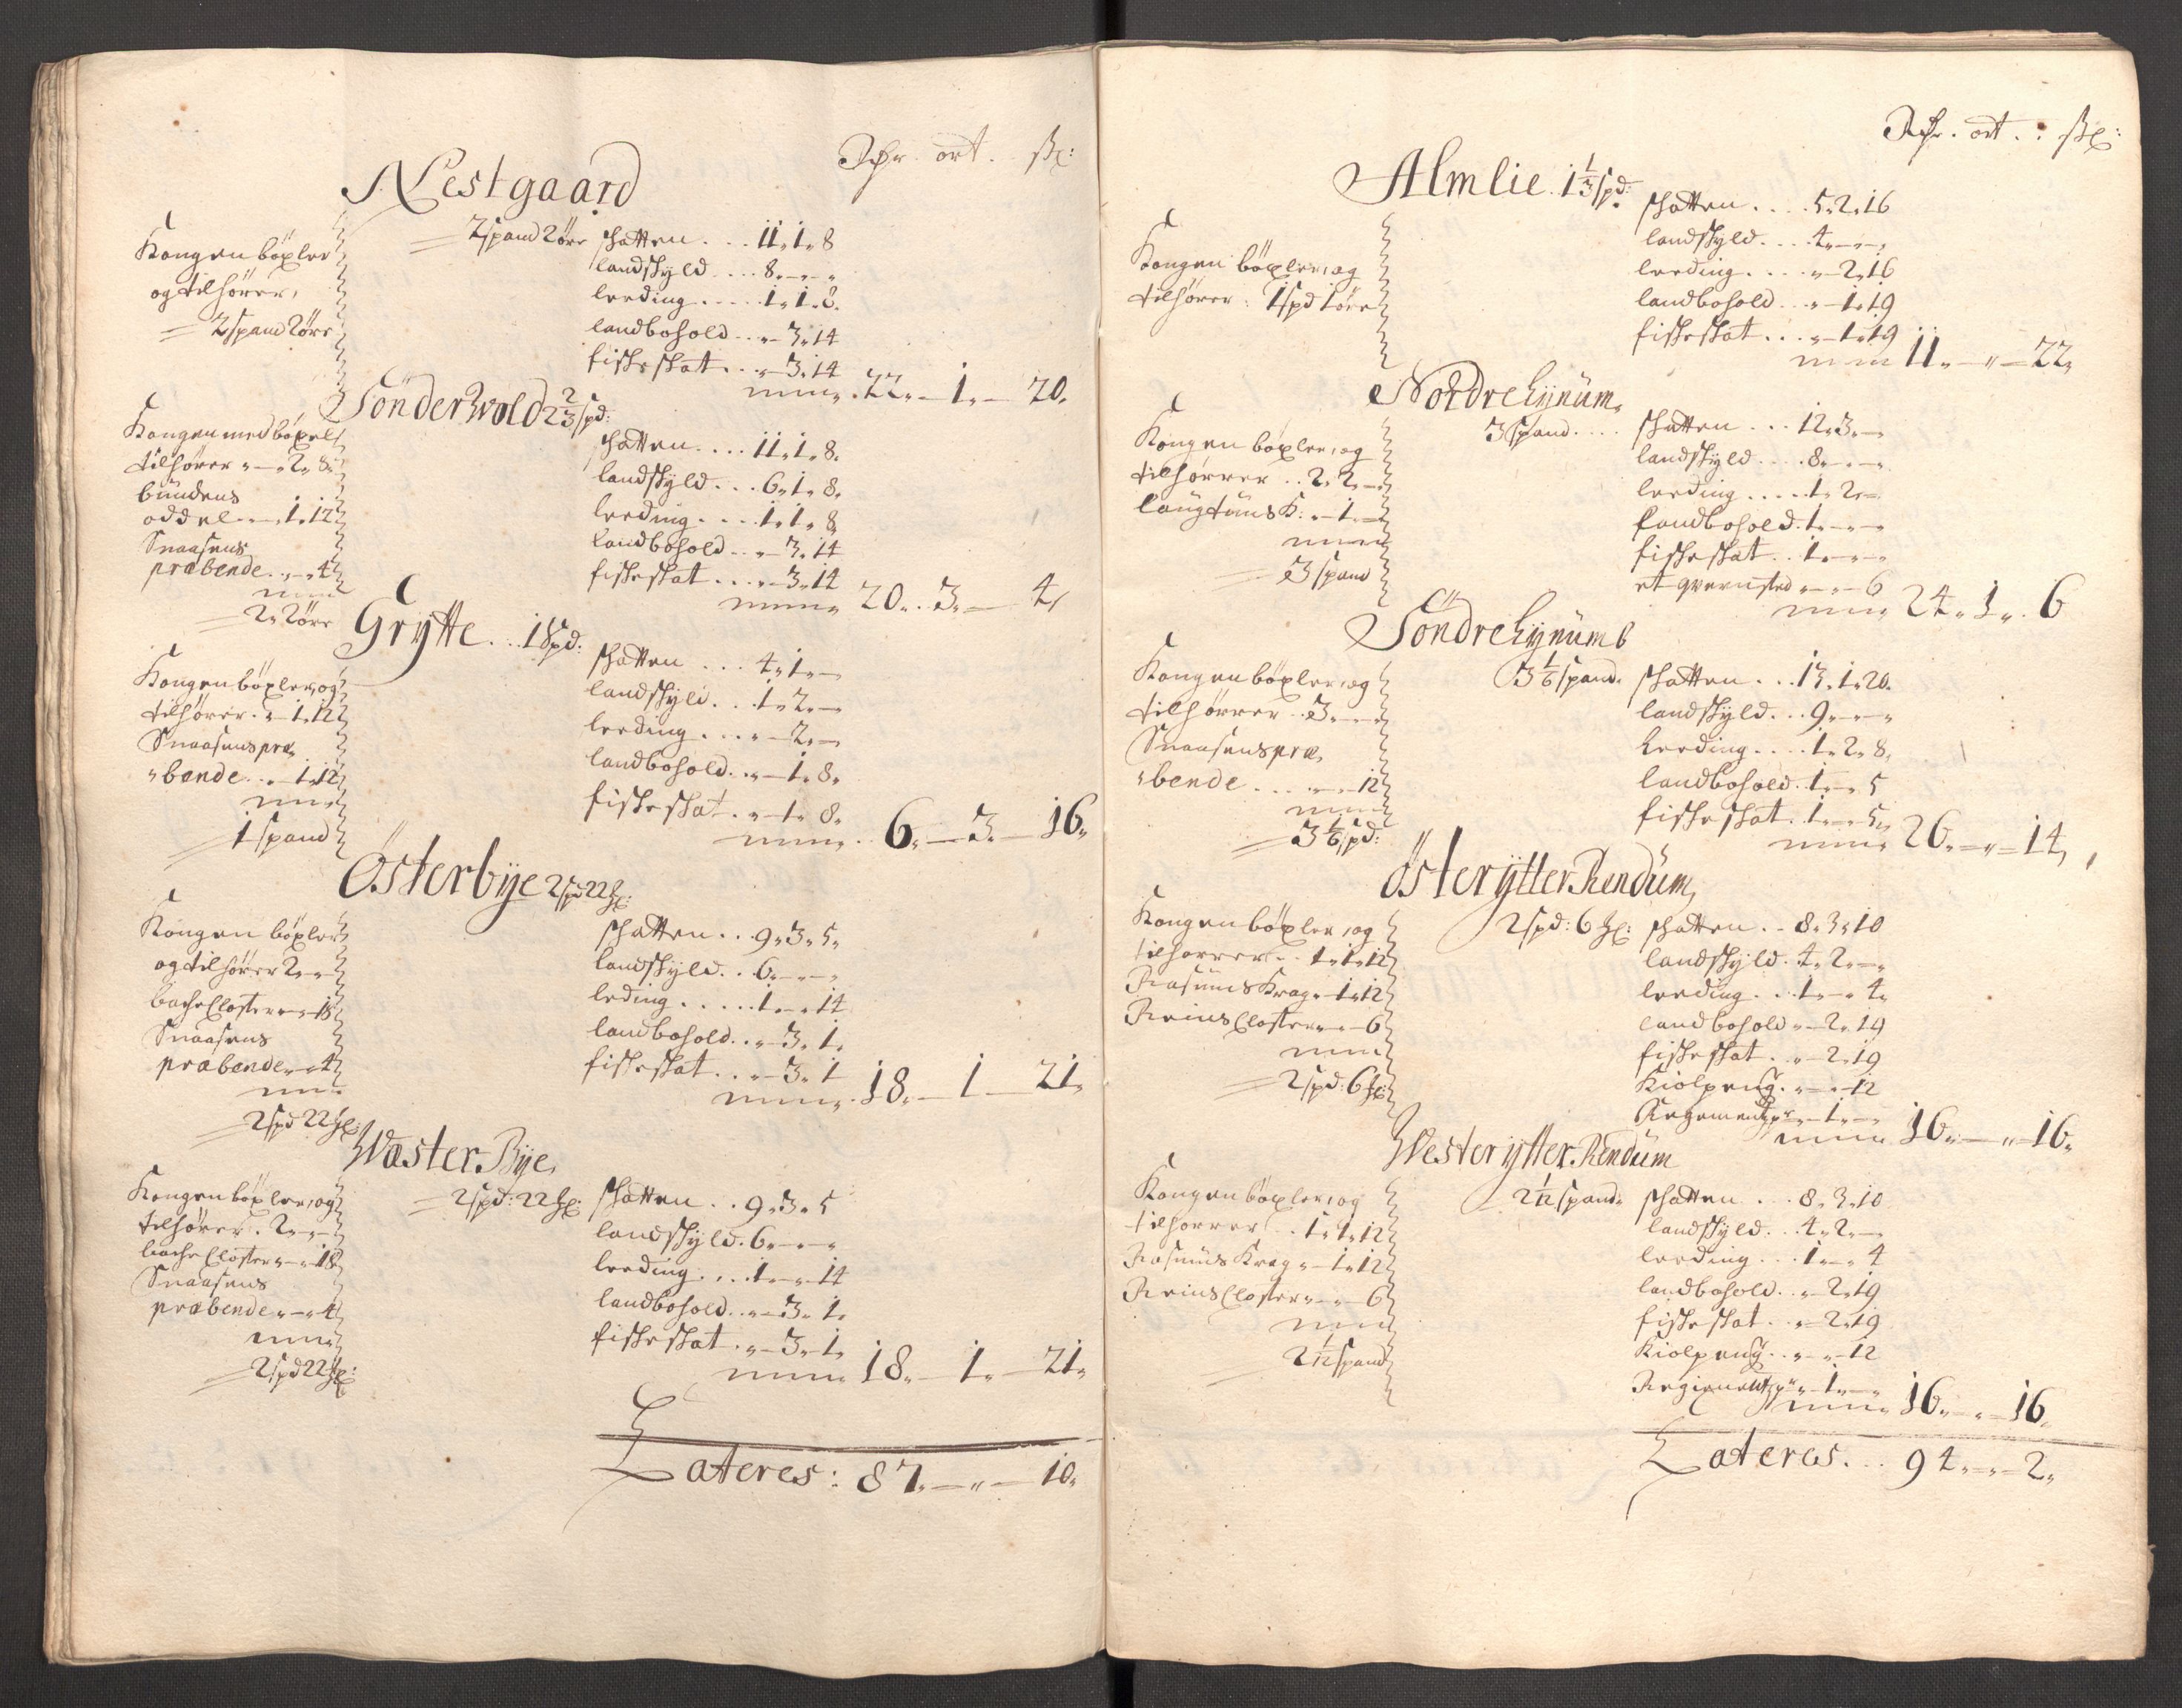 Rdr. ort. sk:
Nestgaard
2 spand 2 øre
Kongen böxler
og tilhører,
2 spand 2 øre
skatten .... 11. 1. 8
landskyld .... 8. - -
leeding ..... 1. 1. 8.
landbohold ... - 3. 14
fiskeskat ... - 3. 14
22. - 1. - 20.
Sönder Wold 2 2/3 spd:
Kongen med böxel
tilhører - 2. 8.
bündens
oddel - 1. 12
Snaasens
præbende - - 4
2. 2 øre
skatten .... 11. 1. 8.
landskyld ... 6. 1. 8.
leeding .... 1. 1. 8
landbohold .. - 3. 14
fiskeskat ... - 3. 14
20. 3. - 4
Grytte ... 1 Spd:
Kongen böxler, og
tilhører. - 1. 12
Snaasens præ
bende .. - 1. 12
1 spand
skatten ... 4. 1. -
landskyld ... 1. 2. -
leeding .... - 2. -
landbohold .. - 1. 8.
fiskeskat .. - 1. 8.
6. - 3. - 16.
Österbye 2 spd 22 
Kongen böxler
og tilhører 2. - -
bache Closter - - 18
Snaasens
præbende - - 4
2 spd 22
skatten .. 9. 3. 5.
landskyld .. 6. - -
leding ..... 1. - 14
landbohold .. - 3. 1.
fiskeskat .. - 3. 1
18. - 1 - 21.
Wæster Bye,
2 spd: 22
Kongen böxler, og
tilhører . 2. - -
bache Closter - - 18
Snaasens
præbende - - 4
2 spd 22
skatten .. 9. 3. 5
landskyld . 6. - -
leeding ... 1. - 14
landbohold .. - 3. 1.
fiskeskat . - 3. 1.
18. - 1. - 21.
Lateres: 87. - " - 10.
Rdr. ort. sk:
Almlie . 1 1/3 spd:
Kongen böxler, og
tilhører: 1 spd 1 øre
skatten .... 5. 2. 16
landskyld .... 4. - -
leeding .... - 2. 16
landbohold .. - 1. 19
fiskeskat ... - 1. 19
11. - " - 22.
Nordre Lynüm,
3 spand ....
Kongen böxler, og
tilhörrer .. 2. 2. -
laugtüns K: - 1. -
3 spand
skatten ... 12. 3. -
landskyld .... 8. - -
leeding ..... 1. 2. -
landbohold . 1. - -
fiskeskat .. 1. - -
et qvernsted - - 6
24. 1. 6
Söndre Lynüm
3 1/6 spand.
Kongen böxler, og
tilhörrer .. 3. - -
Snaasens præ,
bende .... - - 12
3 1/6 spd:
skatten ... 13. 1. 20.
landskyld ... 9. - -
leeding .... 1. 2. 8.
landbohold . 1. - 5
fiskeskat . 1. - 5.
26. - " - 14,
Öster ytter Rendüm,
2 spd: 6
Kongen böxler, og
tilhorrer .. 1. 1. 12
Rasmus Krag - 1. 12
Reins Closter - - 6
2 spd: 6
skatten .. 8. 3. 10
landskyld . 4. 2. -
leeding .. 1. - 4.
landbohold - 2. 19
fiskeskat . - 2. 19
Kiolpeng . - - 12
- 1. -
16. - " - 16.
Wester ytter Rendüm
2 1/12 spand.
Kongen böxler, og
tilhorrer .. 1. 1. 12
Rasmüs Krag - 1. 12
Reins Closter - - 6
2 1/12 spand
skatten ... 8. 3. 10
landskyld .. 4. 2. -
leeding ... 1. - 4
landbohold .. - 2. 19
fiskeskat .. - 2. 19
Kiolpeng .. - - 12
- 1. -
16. - " - 16.
Lateres ... 94. - " - 2.